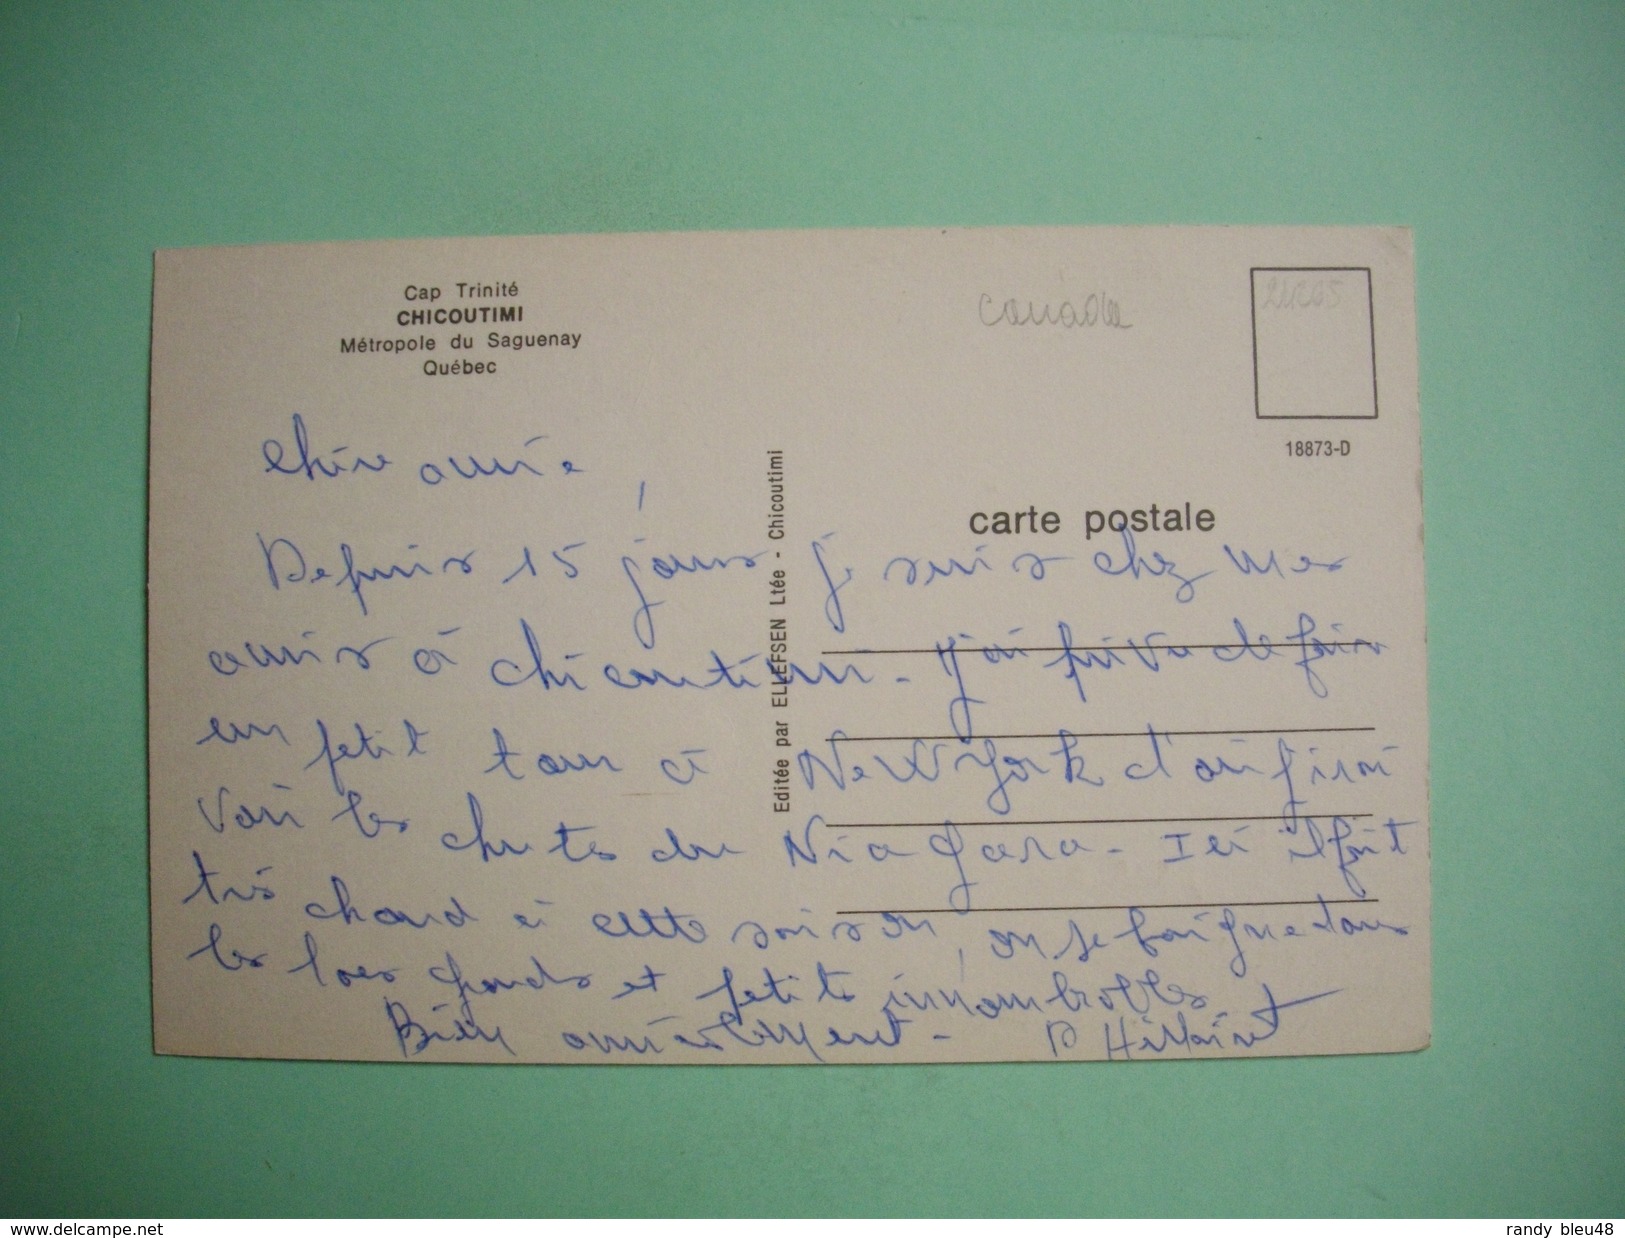 Cap Trinité
CHICOUTIMI
Métropole du Saguenay
Québec
Canada
18873-D
carte postale
Editée par ELLEFSEN Ltée - Chicoutimi
Chère amie,
Depuis 15 jours je suis chez mes
amis à Chicoutimi. J'ai prévu de faire
un petit tour à New York d'où j'irai
voir les chutes du Niagara. Ici il fait
très chaud à cette saison, on se baigne dans
les lacs grands et petits innombrables
Bien amicalement.
www.delcampe.net
randy_bleu48